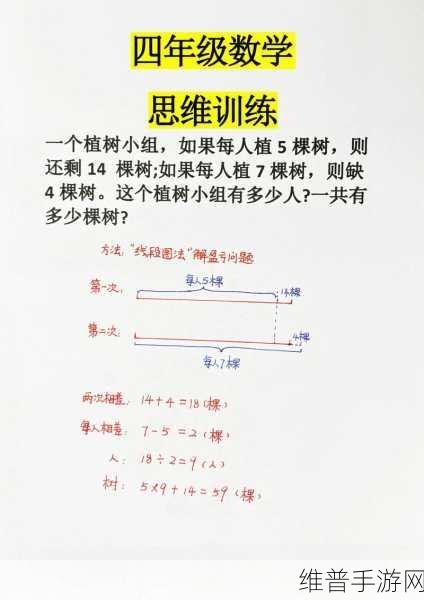 四年级数学
思维训练
一个植树小组，如果每人植 5 棵树，则
还剩 14 棵树;如果每人植 7 棵树，则缺
4 棵树。这个植树小组有多少人?一共有
多少棵树?
方法："线段图法"解盈亏问题
每人5棵
第一次：
14棵
第二次：
4棵
每人7棵
两次相差：14+4=18（棵）
每人相差：7-5=2（棵）
人：18÷2=9（人）
树：5×9+14=59（棵）
维普手游网